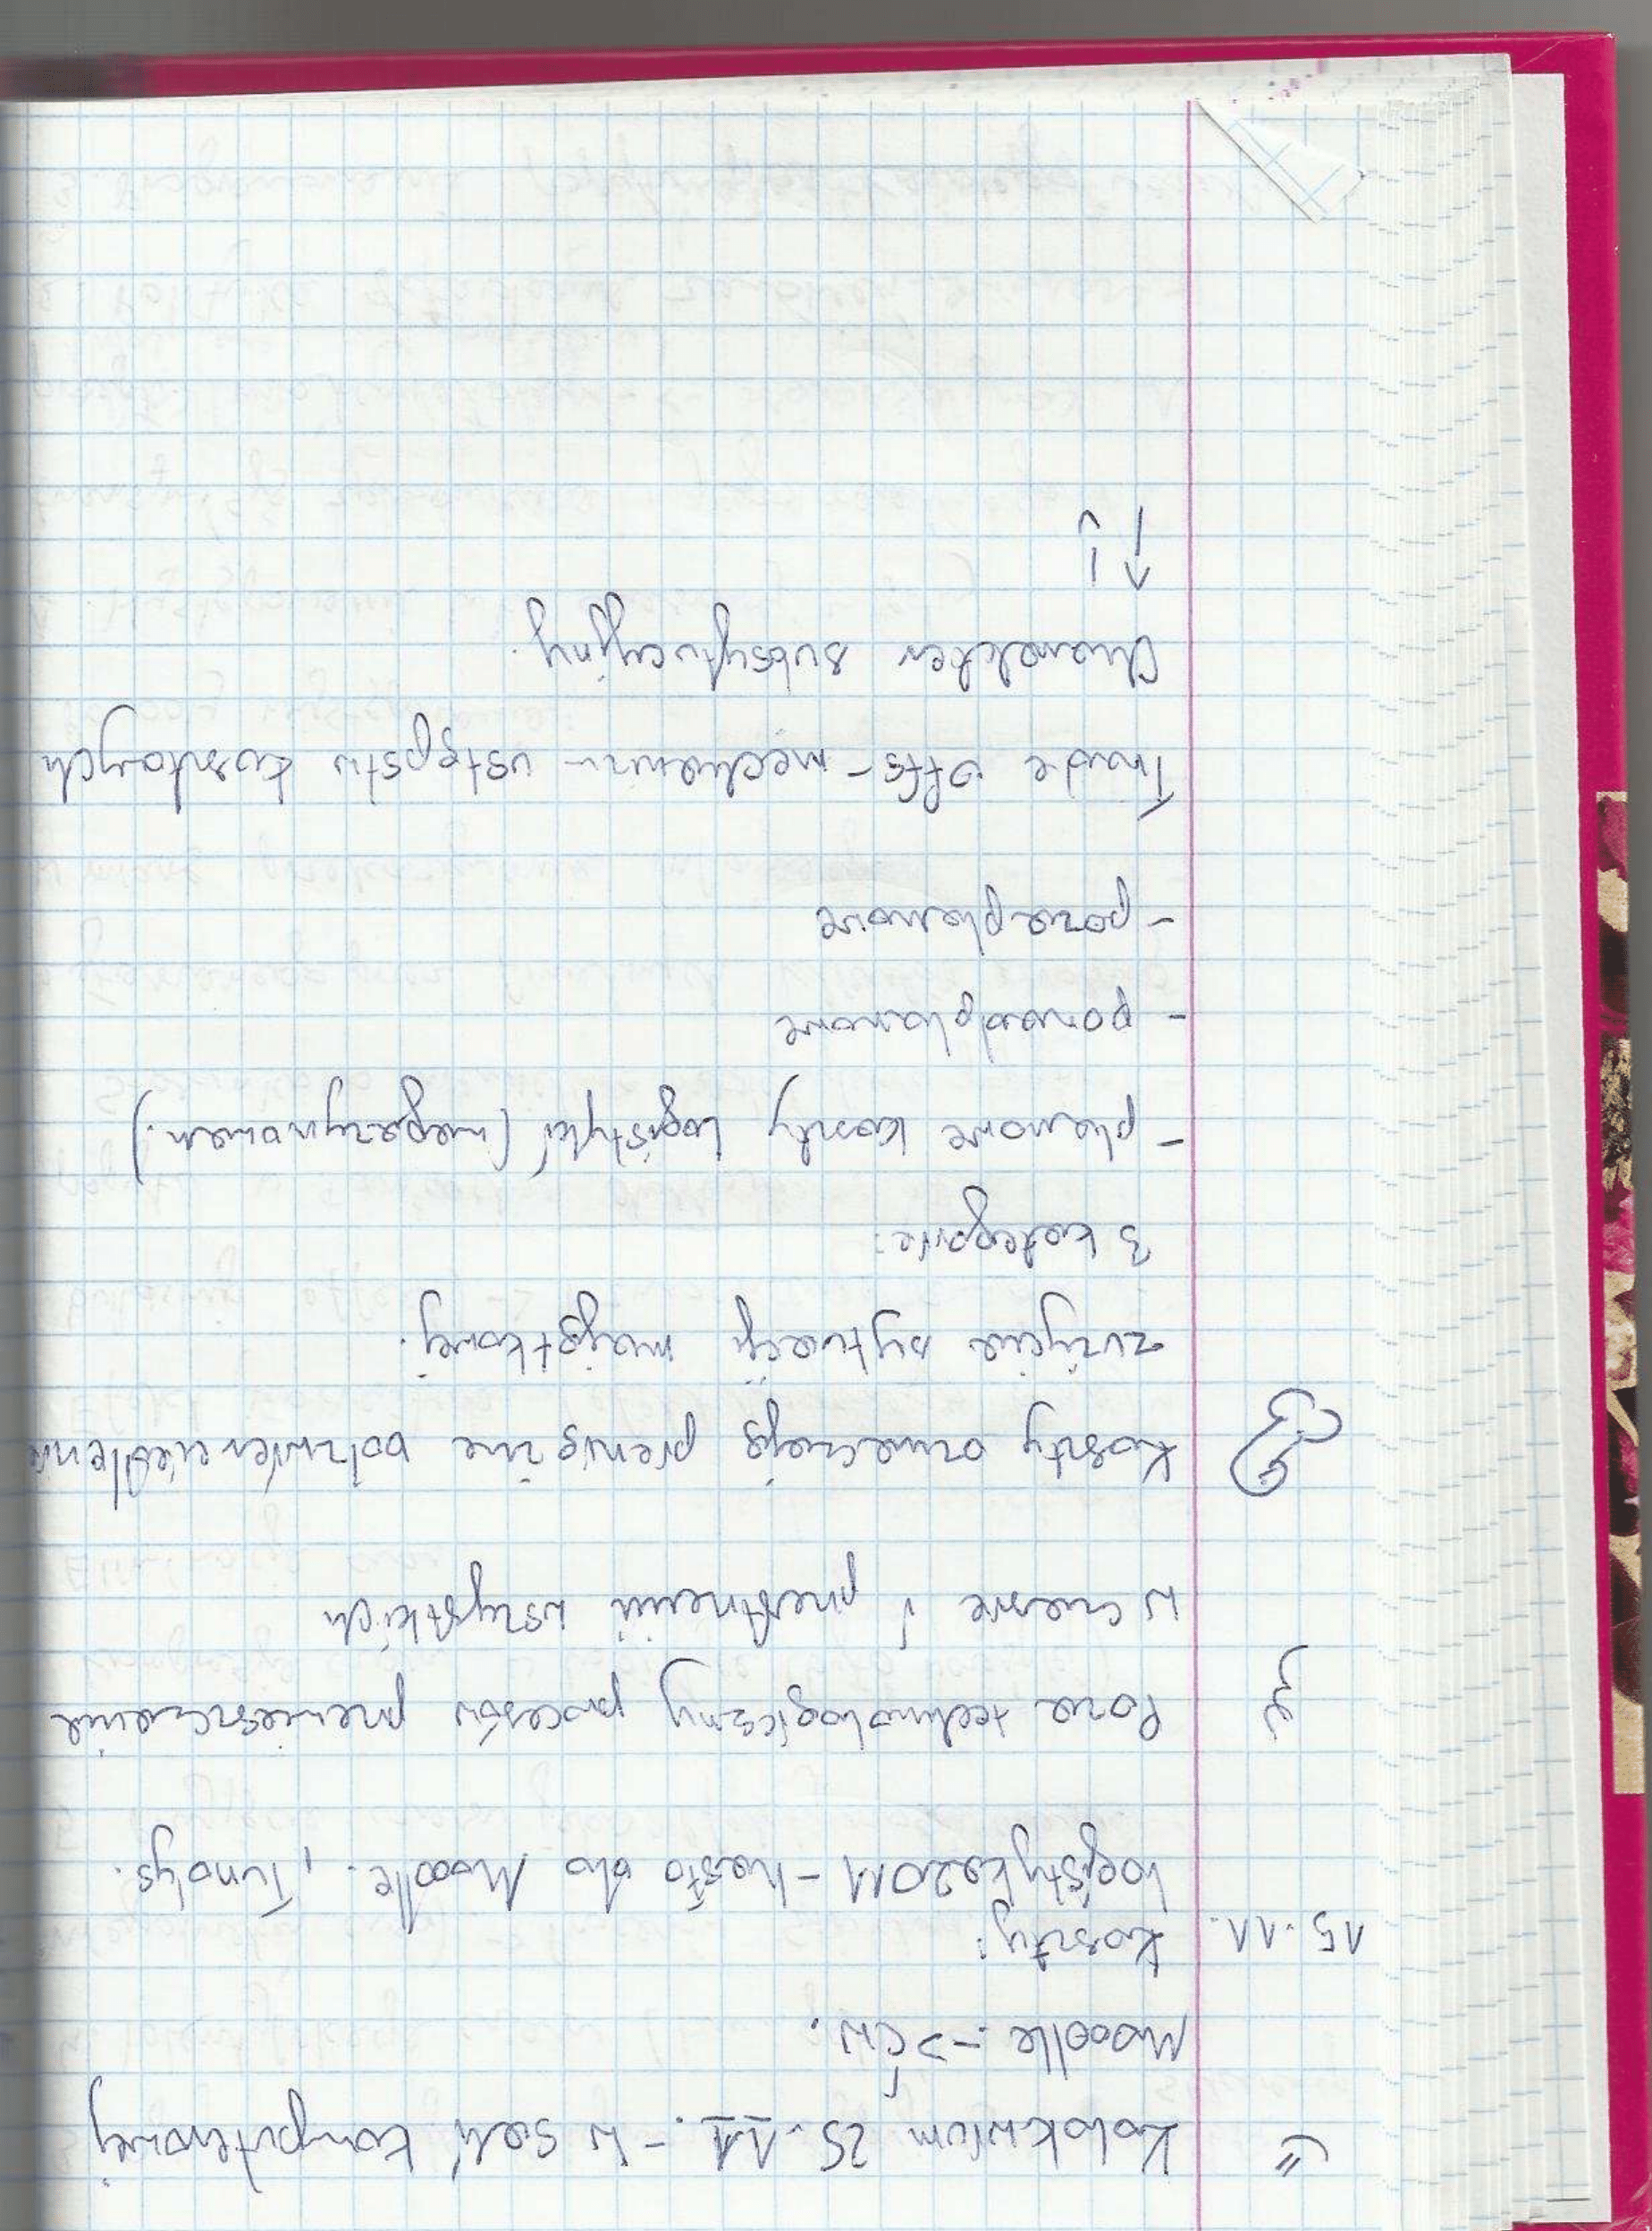 Kolokwium 25.11. - w sali komputerowej
Moodle -> ćw.
15.11. Koszty:
Logistyka2011 - hasło do Moodle. , Tundys.
Poza technologiczny procesów przemieszczenie
w czasie i przestrzeni wszystkich
Koszty oznaczają pieniężne odzwierciedlenie
zużycia sytuacji majątkowej.
3 kategorie:
- planowe koszty logistyki (magazynowan.)
- ponadplanowe
- pozaplanowe
Trade offs - mechanizm ustępstw kosztowych
Charakter substytucyjny.